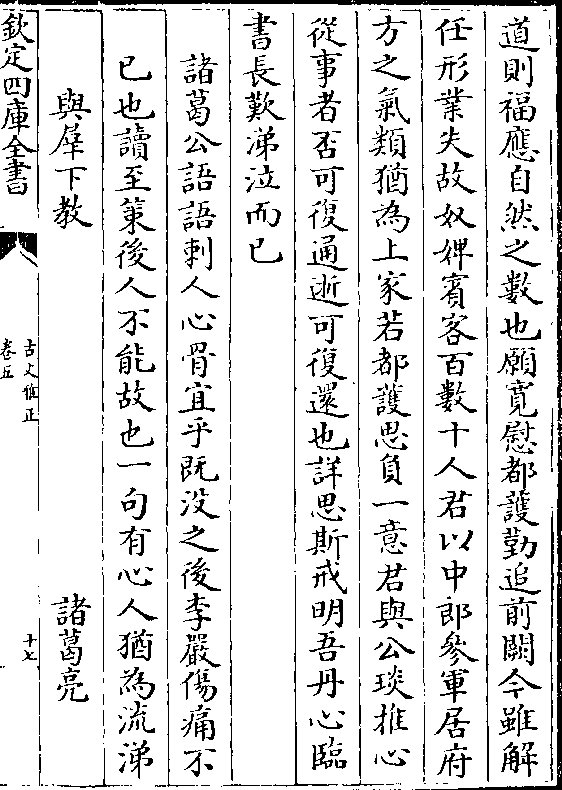 道則福應自然之數也願寛慰都護勤追前闕今雖解
任形業失故奴婢賓客百數十人君以中郎參軍居府
方之氣類猶為上家若都護思負一意君與公琰推心
從事者否可復通逝可復還也詳思斯戒明吾丹心臨
書長歎涕泣而已
諸葛公語語刺人心骨宜乎既没之後李嚴傷痛不
已也讀至策後人不能故也一句有心人猶為流涕
與羣下教
諸葛亮
欽定四庫全書
古文雅正
卷五
十七